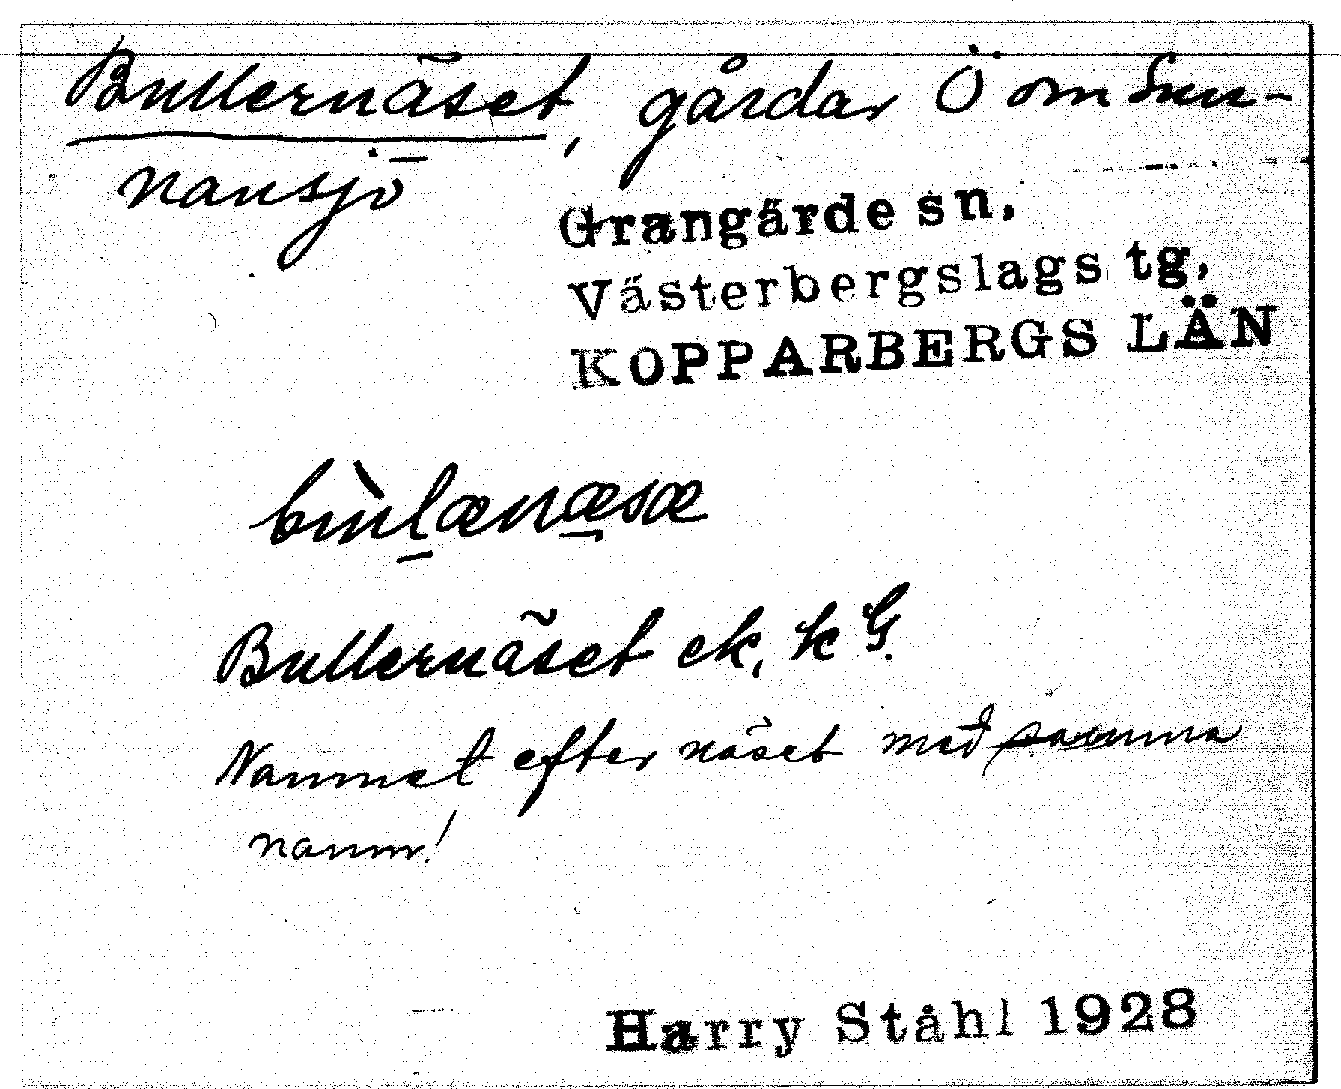 Bullernäset, gårdar Ö om Sun-
nansjö
Grangärde sn.
Västerbergslags tg.
KOPPARBERGS LÄN
Bullernäset ek. k G.
Namnet efter näset med samma
namn!
Harry Ståhl 1928